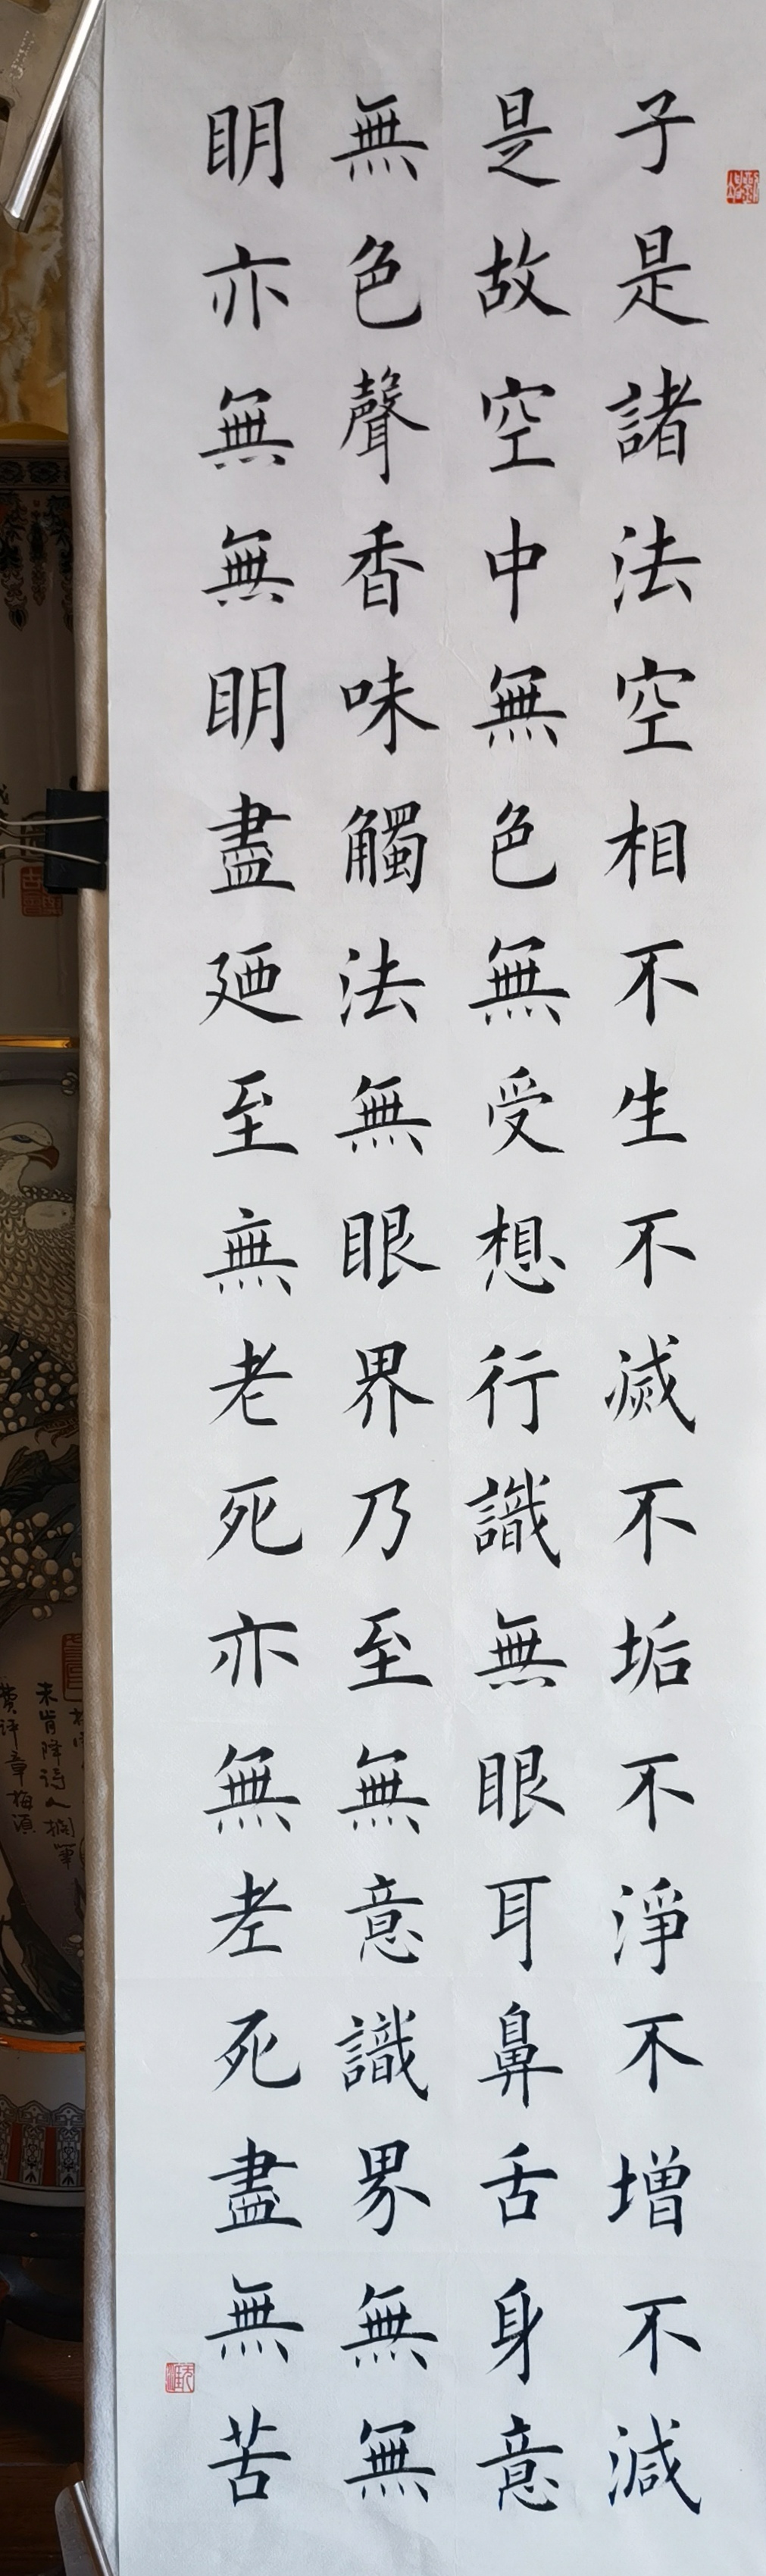 子是諸法空相不生不滅不垢不淨不增不減
是故空中無色無受想行識無眼耳鼻舌身意
無色聲香味觸法無眼界乃至無意識界無無
明亦無無明盡廼至無老死亦無老死盡無苦
未肯降詩人擱筆
費評章梅須